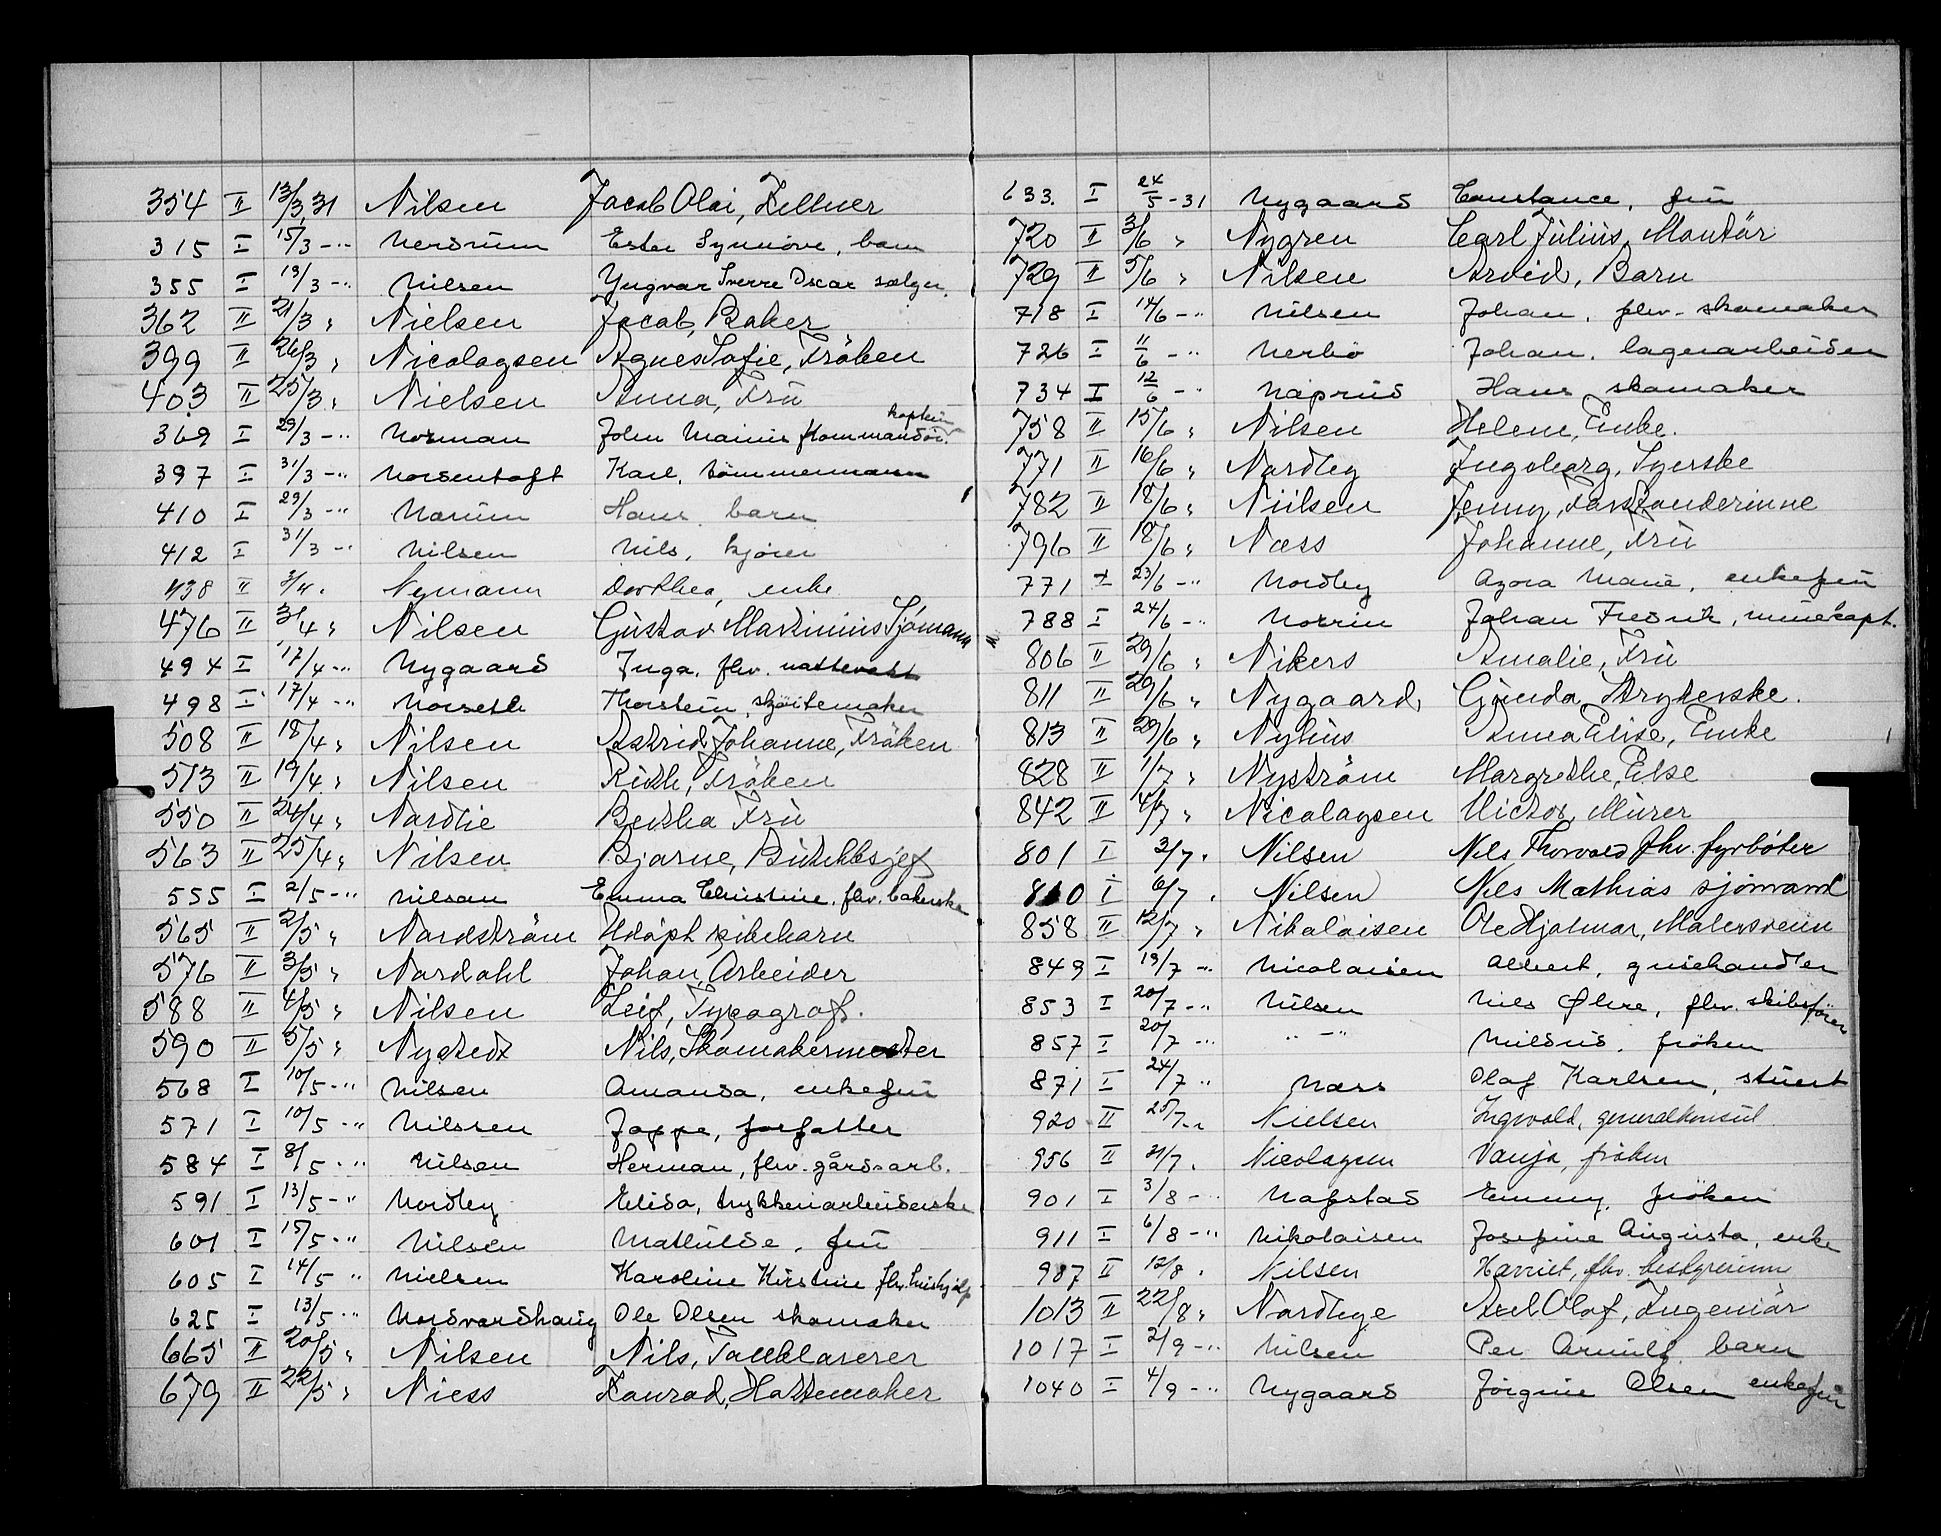 354 II 13/3 31 Nilsen Jacob Olai, Kellner
315 I 15/3 -" Nersrum Ester Synnöve, barn
355 I 19/3 -" Nilsen Yngvar Sverre Oscar sælger
362 II 21/3 " Nielsen Jacob, Baker
399 II 26/3 " Nicolaysen Agnes Sofie, Fröken
403 II 25/3 " Nielsen Anna, Frü
369 I 29/3 -" Norman John Mainis kommandör kaptein
397 I 31/3 -" Norsentoft Karl, tömmermann
410 I 29/3 -" Narum Hans, barn
412 I 31/3 -" Nilsen Nils, kjörer
438 II 2/4 " Nymann Dorthea, enke
476 II 31/4 " Nilsen Güstav Martinius Sjömann
494 I 17/4 -" Nygaard Inga, fhv. nattevakt
498 I 17/4 -" Norseth Thorstein, skjöitemaker
508 II 18/4 " Nilsen Astrid Johanne, Fröken
513 II 19/4 " Nilsen Rüth, Fröken
550 II 24/4 " Nordlie Bertha Frü
563 II 25/4 " Nilsen Bjarne, Bütikksjef
555 I 2/5 -" Nilsen Emma Christine, fhv. bakerske
565 II 2/5 " Nordström Udöpt pikebarn
576 II 3/5 " Nordahl Johan, Arbeider
588 II 4/5 " Nilsen Leif, Typograf.
590 II 5/5 " Nystedt Nils, Skomakermester
568 I 10/5 -" Nilsen Amanda, enkefrü
571 I 10/5 -" Nilssen Jappe, forfatter
584 I 8/5 -" Nilsen Herman, fhv. gårdsarb.
591 I 13/5 -" Nordby Elida, trykkeriarbeiderske
601 I 15/5 -" Nilsen Mathilde, frü
605 I 14/5 " Nielsen Karoline Kirstine fhv. hushjelp
625 I 13/5 -" Nordvardshaug Ole Olsen skomaker
665 II 20/5 " Nilsen Nils, Taüklarerer
679 II 22/5 " Niess Konrad, Hattemaker
633. I 24/5 -31 Nygaard Constance, frü
720 II 3/6 " Nygren Carl Jülius, Montör
729 II 5/6 " Nilsen Arvid, Barn
718 I 14/6 -" Nilsen Johan, fhv. skomaker
726 I 11/6 -" Nerbö Johan, lagerarbeider
734 I 12/6 -" Naprud Hans skomaker
758 II 15/6 " Nilsen Helene, Enke.
771 II 16/6 " Nordby Ingeborg, Syerske
782 II 18/6 " Niilsen Jenny, Forstanderinne
796 II 18/6 " Næss Johanne, Frü
771 I 23/6 -" Nordby Agora Marie, enkefrü
788 I 24/6 -" Norrin Johan Fredrik, minekapt.
806 II 29/6 " Nikers Amalie, Frü
811 II 29/6 " Nygaard, Günda, Strykerske.
813 II 29/6 " Nyhüs Anna Elise, Enke
828 II 1/7 " Nyström Margrethe, Else
842 II 4/7 " Nicolaysen Victor, Mürer
801 I 3/7 " Nilsen Nils Thorvald fhv. fyrböter
810 I 6/7 " Nilsen Nils Mathias sjömand
858 II 12/7 " Nikolaisen Ole Hjalmar, Malersvenn
849 I 19/7 -" Nicolaisen Albert, grisehandler
853 I 20/7 -" Nilsen Nils Öhre, fhv. skibsförer
857 I 20/7 -" " Milsüs, fröken
871 I 24/7 " Næss Olaf Karlsen, stüert
920 II 25/7 -" Nielsen Ingvald, generalkonsul
956 II 31/7 " Nicolaysen Vanja, fröken
901 I 3/8 -" Nafstad Emmy, fröken
911 I 6/8 -" Nikolaisen Josefine Augusta, enke
987 II 12/8 " Nilsen Harriet, fhv. bestyrerinne
1013 II 22/8 " Nordbye Axel Olaf, Ingeniör
1017 I 2/9 -" Nilsen Per Arnulf barn
1040 I 4/9 -" Nygaard Jörgine Olsen enkefrü